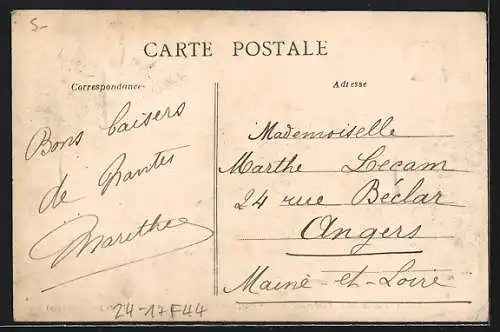 5-
CARTE POSTALE
Correspondance
Adresse
Bons baisers
de Nantes
Marthe
Mademoiselle
Marthe Lecam
24 rue Béclar
Angers
Maine-et-Loire
24-17F44